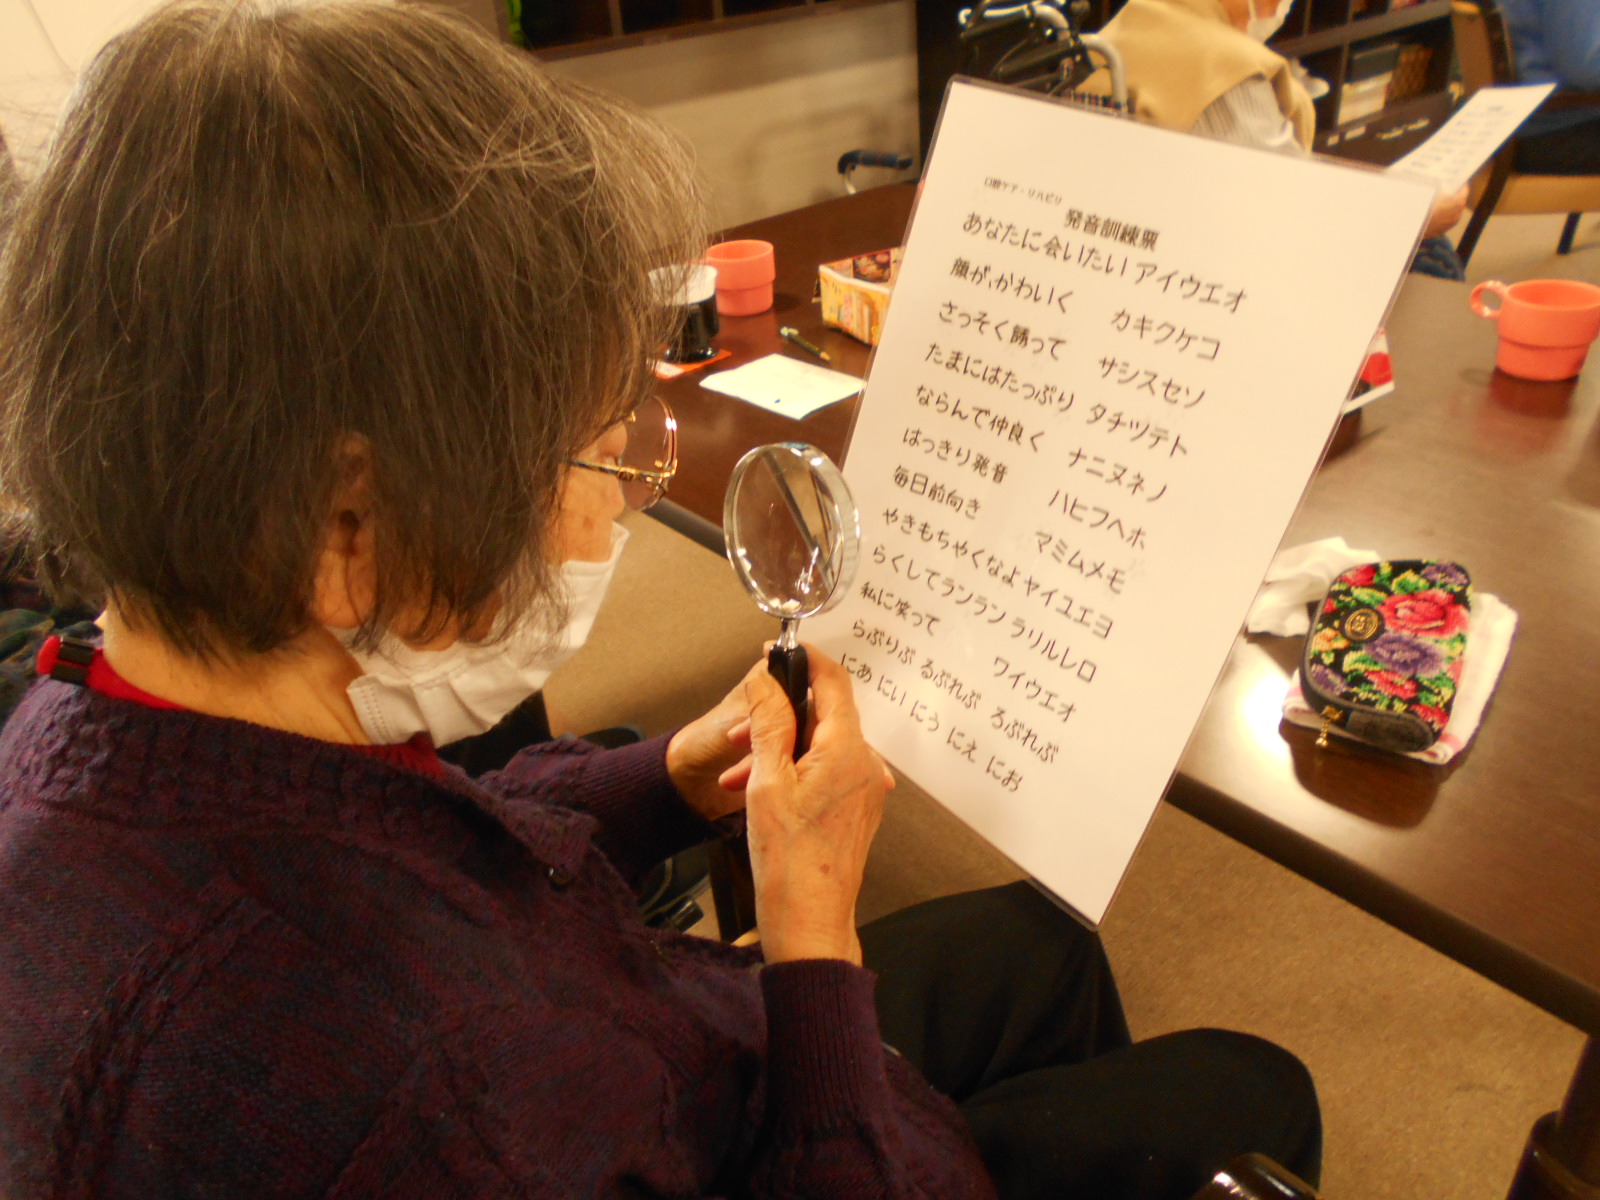 口腔ケア・リハビリ
発音訓練票
あなたに会いたい アイウエオ
顔が、かわいく カキクケコ
さっそく誘って サシスセソ
たまにはたっぷり タチツテト
ならんで仲良く ナニヌネノ
はっきり発音 ハヒフヘホ
毎日前向き マミムメモ
やきもちやくなよ ヤイユエヨ
らくしてランラン ラリルレロ
私に笑って ワイウエオ
らぶりぶ るぶれぶ ろぶれぶ
にあ にい にう にえ にお